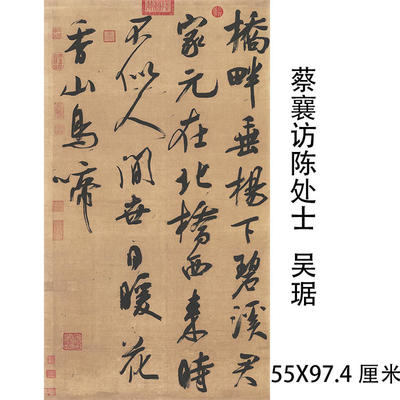 橋畔垂楊下碧溪君
家元在北橋西來時
不似人間世日暖花
香山鳥啼
蔡襄访陈处士 吴琚
55X97.4 厘米